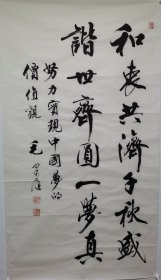 和衷共濟千秋盛
諧世齊圓一夢真
努力實現中國夢的
價值觀